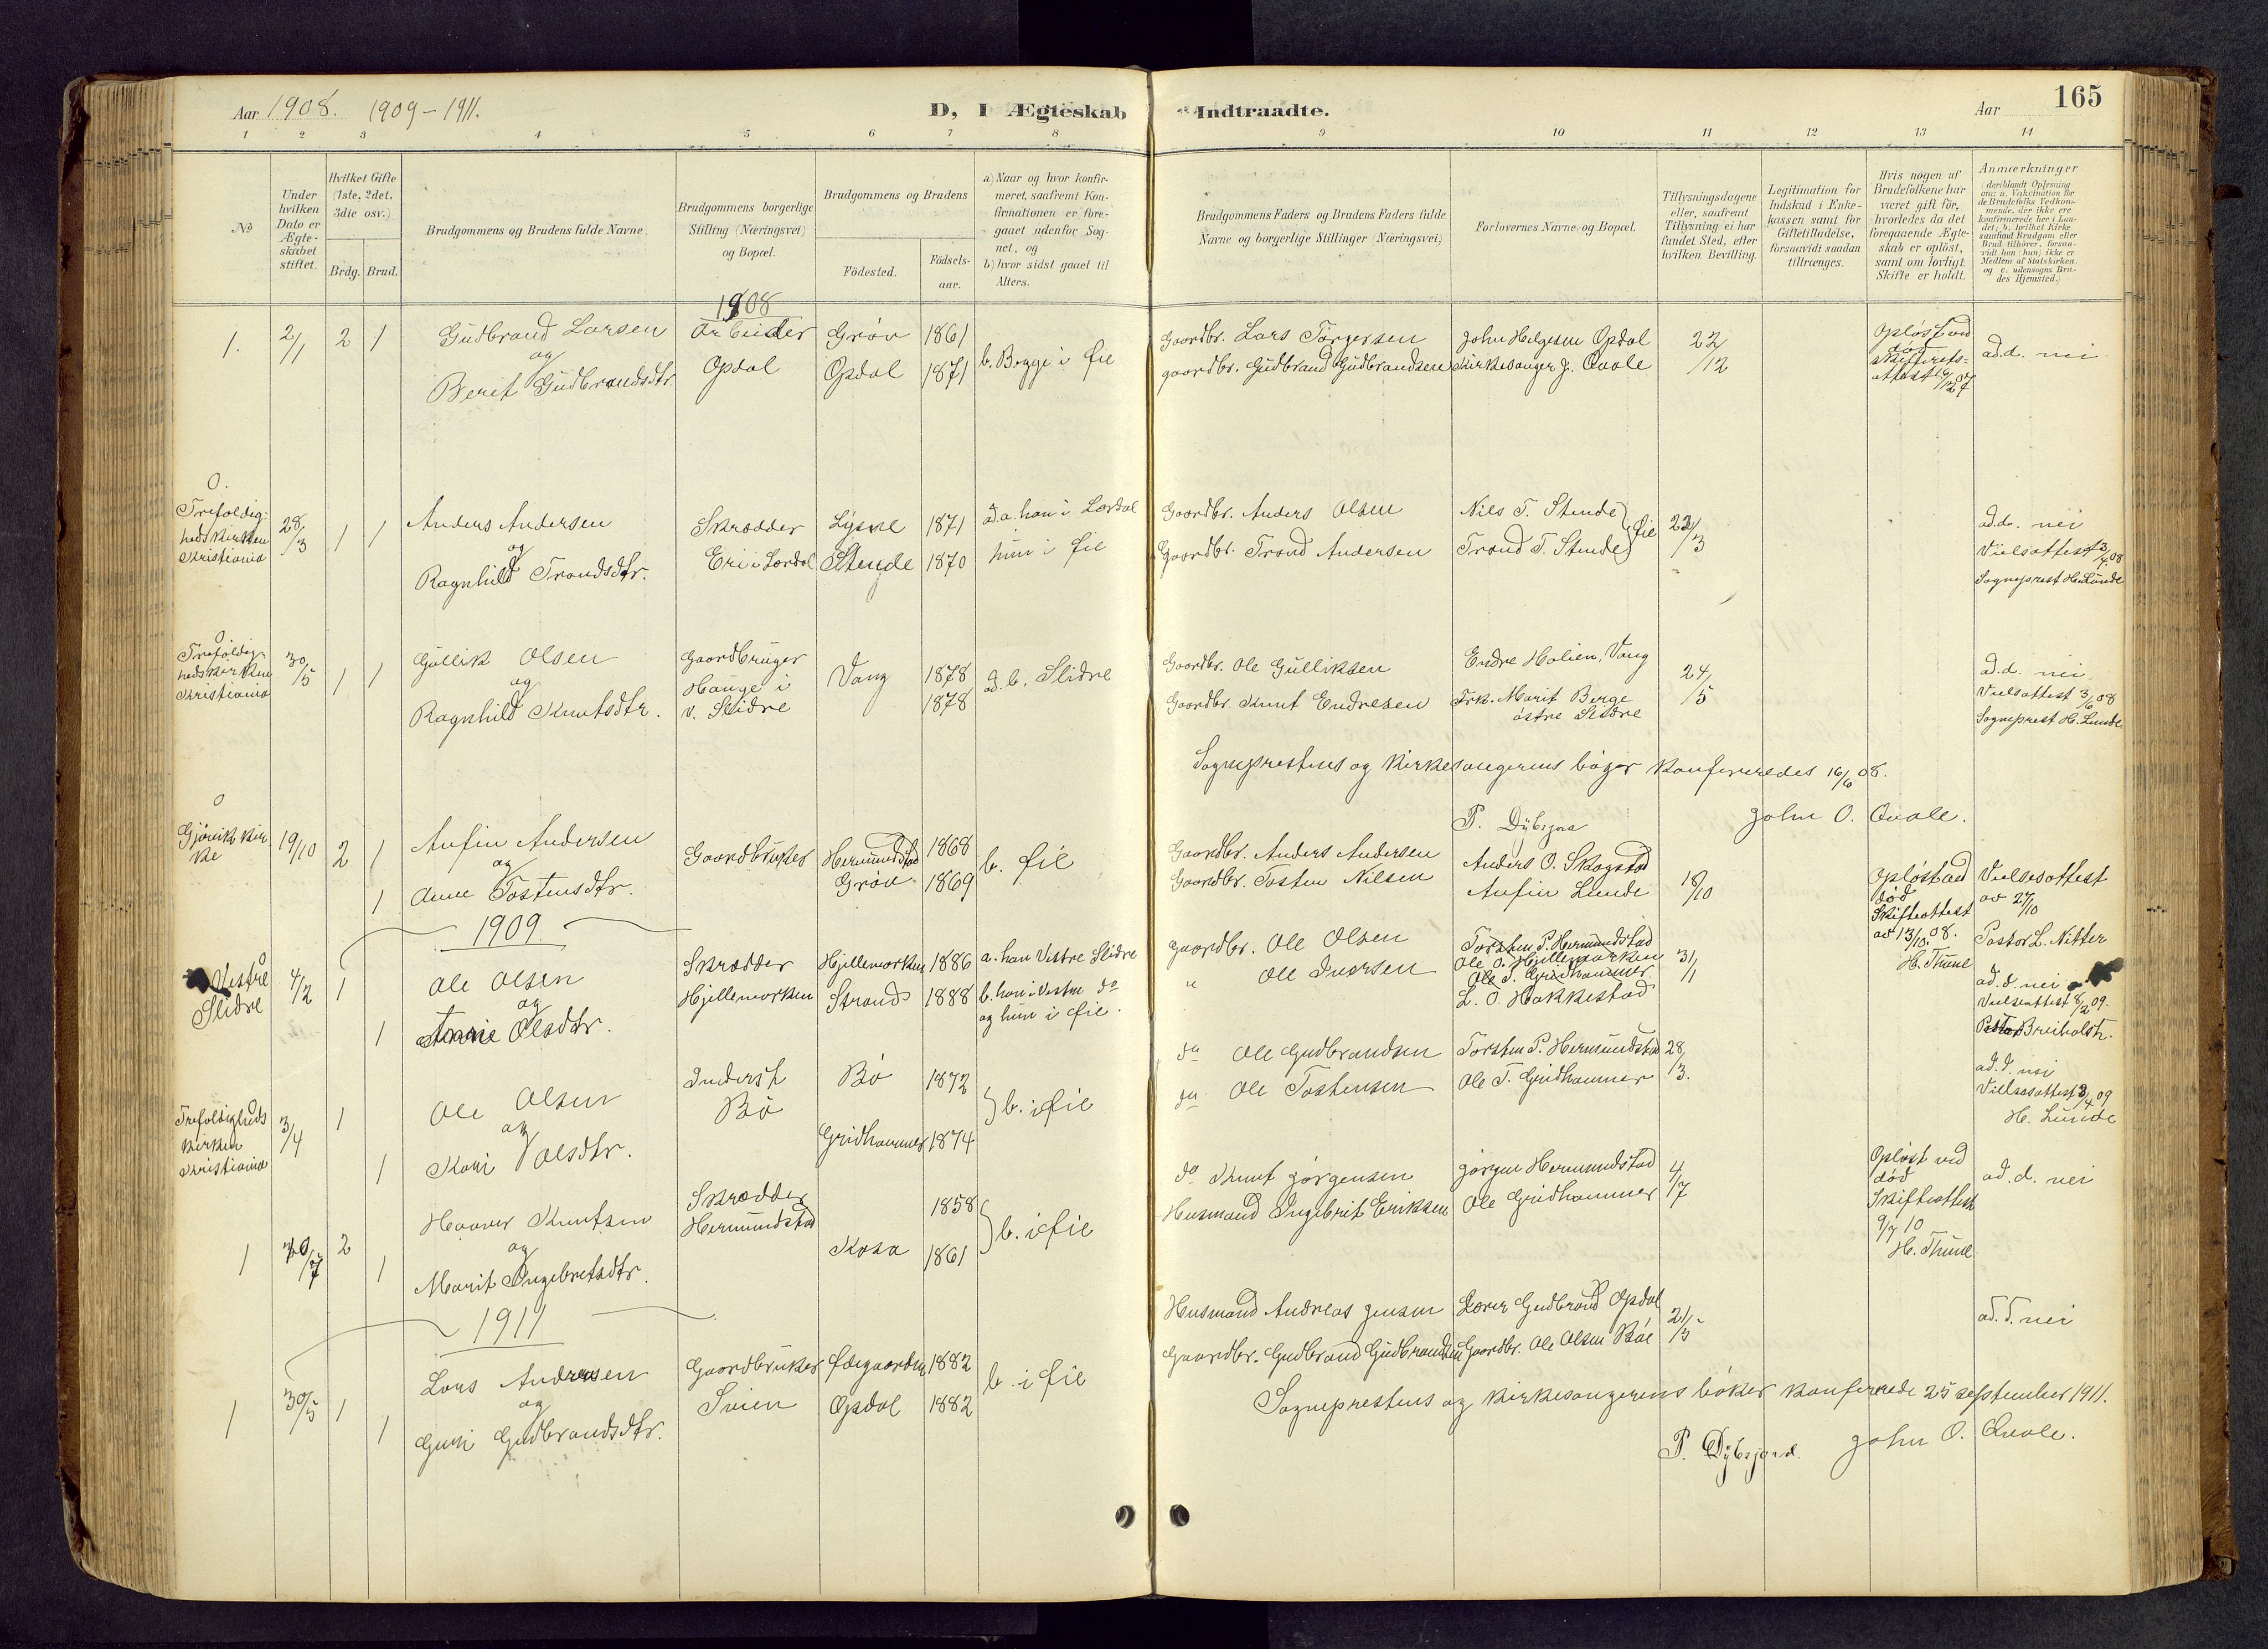 Aar 1908. 1909-1911.
D, I Ægteskab Indtraadte.
Aar
165
1 2 3 4 5 6 7 8 9 10 11 12 13 14
No
Under hvilken Dato er Ægteskabet stiftet.
Hvilket Gifte (1ste, 2det, 3die osv.)
Brdg. Brud.
Brudgommens og Brudens fulde Navne.
Brudgommens borgerlige Stilling (Næringsvei) og Bopæl.
Brudgommens og Brudens
Födested.
Födselsaar.
a) Naar og hvor konfirmeret, saafremt Konfirmationen er foregaaet udenfor Sognet, og
b) hvor sidst gaaet til Alters.
Brudgommens Faders og Brudens Faders fulde Navne og borgerlige Stillinger (Næringsvei)
Forlovernes Navne og Bopæl.
Tillysningsdagene eller, saafremt Tillysning ei har fundet Sted, efter hvilken Bevilling.
Legitimation for Indskud i Enkekassen samt for Giftetilladelse, forsaavidt saadan tiltrænges.
Hvis nogen af Brudefolkene har været gift för, hvorledes da det foregaaende Ægteskab er oplöst, samt om lovligt Skifte er holdt.
Anmærkninger
(deriblandt Oplysning om: a. Vakcination for de Brudefolks Vedkommende, der ikke ere konfirmerede her i Landet; b. hvilket Kirkesamfund Brudgom eller Brud tilhörer, forsaavidt han (hun) ikke er Medlem af Statskirken, og c. udensogns Brudes Hjemsted.)
1908
1. 2/1 2 1 Gudbrand Larsen Arbeider Grøv 1861 b. Begge i Øie Gaardbr. Lars Torgersen John Helgesen Opdal 22/12 Opløst ved død ad.d. nei
og
Berit Gudbrandsdtr. Opdal Opdal 1871 gaardbr. Gudbrand Gudbrandsen Kirkesanger J. Qvale Skifterets-
attest 16/12 07
0.
Trefoldig-
hedskirken
Kristiania
28/3 1 1 Anders Andersen Skrædder Lysne 1871 ad.a. han i Lærdal Gaardbr. Anders Olsen Nils T. Stende 22/3 ad.d. nei
og
Ragnhild Trondsdtr. Eri i Lærdal Stende 1870 hun i Øie Gaardbr. Trond Andersen Trond T. Stende Øie Vielsattest 3/4 08
Sogneprest H. Lunde
0
Trefoldig-
hedskirken
Kristiania
30/5 1 1 Gullik Olsen Gaardbruger Vang 1878 ad. b. Slidre Gaardbr. Ole Gulliksen Endre Holien, Vang 24/5 ad.d. nei
og Hauge i
Ragnhild Knutsdtr. v. Slidre 1878 Gaardbr. Knut Endresen Frk. Marit Berge Vielsattest 3/6 08
østre Slidre Sogneprest H. Lunde
Sogneprestens og Kirkesangerens bøger konfereredes 16/6 08.
P. Dybsjord John O. Qvale.
0
Gjøvik kir-
ke
19/10 2 1 Anfin Andersen Gaardbruker Hermundstad 1868 b. Øie Gaardbr. Anders Andersen Anders O. Skogstad 18/10 Opløst ved Vielsesattest
og død av 27/10
1 Anne Tostensdtr. Grøv 1869 Gaardbr. Tosten Nilsen Anfin Lunde Skifteattest
av 13/10 08. Pastor L. Nitter
H. Thune
1909
0
Vestre
Slidre
4/2 1 Ole Olsen Skrædder Hjellemorken 1886 a. han Vestre Slidre gaardbr. Ole Olsen Torsten P. Hermundstad 31/1 ad.d. nei
og Ole O. Hjellemorken
1 Anne Olsdtr. Hjellemorken Strand 1888 b. han i Vestre do " Ole Iversen Ole T. Gridhammer Vielsattest 8/2 09.
og hun i Øie. L. O. Hakkestad Pastor Breiholtz.
Trefoldigheds
kirken
Kristiania
3/4 1 Ole Olsen Inderst Bø 1872 b. i Øie do Ole Gudbrandsen Torsten P. Hermundstad 28/3. ad.d. nei
og Bø Vielsesattest 3/4 09
1 Kari Olsdtr. Gridhammer 1874 do Ole Tostensen Ole T. Gridhammer H. Lunde
1 2 Haavar Knutsen Skrædder 1858 b. i Øie do Knut Jørgensen Jørgen Hermundstad 4/7 Opløst ved ad.d. nei
og Hermundstad død
1 Marit Ingebretsdtr. Kosa 1861 Husmand Ingebrit Eriksen Ole Gridhammer Skifteattest
9/7 10
H. Thune
1911
1 30/5 1 Lars Andreasen Gaardbruker Ødegaarden 1882 b. i Øie Husmand Andreas Jensen Lærer Gudbrand Opdal 21/5 ad.d. nei
og
1 Guri Gudbrandsdtr. Svien Opdal 1882 Gaardbr. Gudbrand Gudbrandsen Gaardbr. Ole Olsen Bøe
Sogneprestens og kirkesangerens bøker konferrede 25 september 1911.
P. Dybsjord. John O. Qvale.